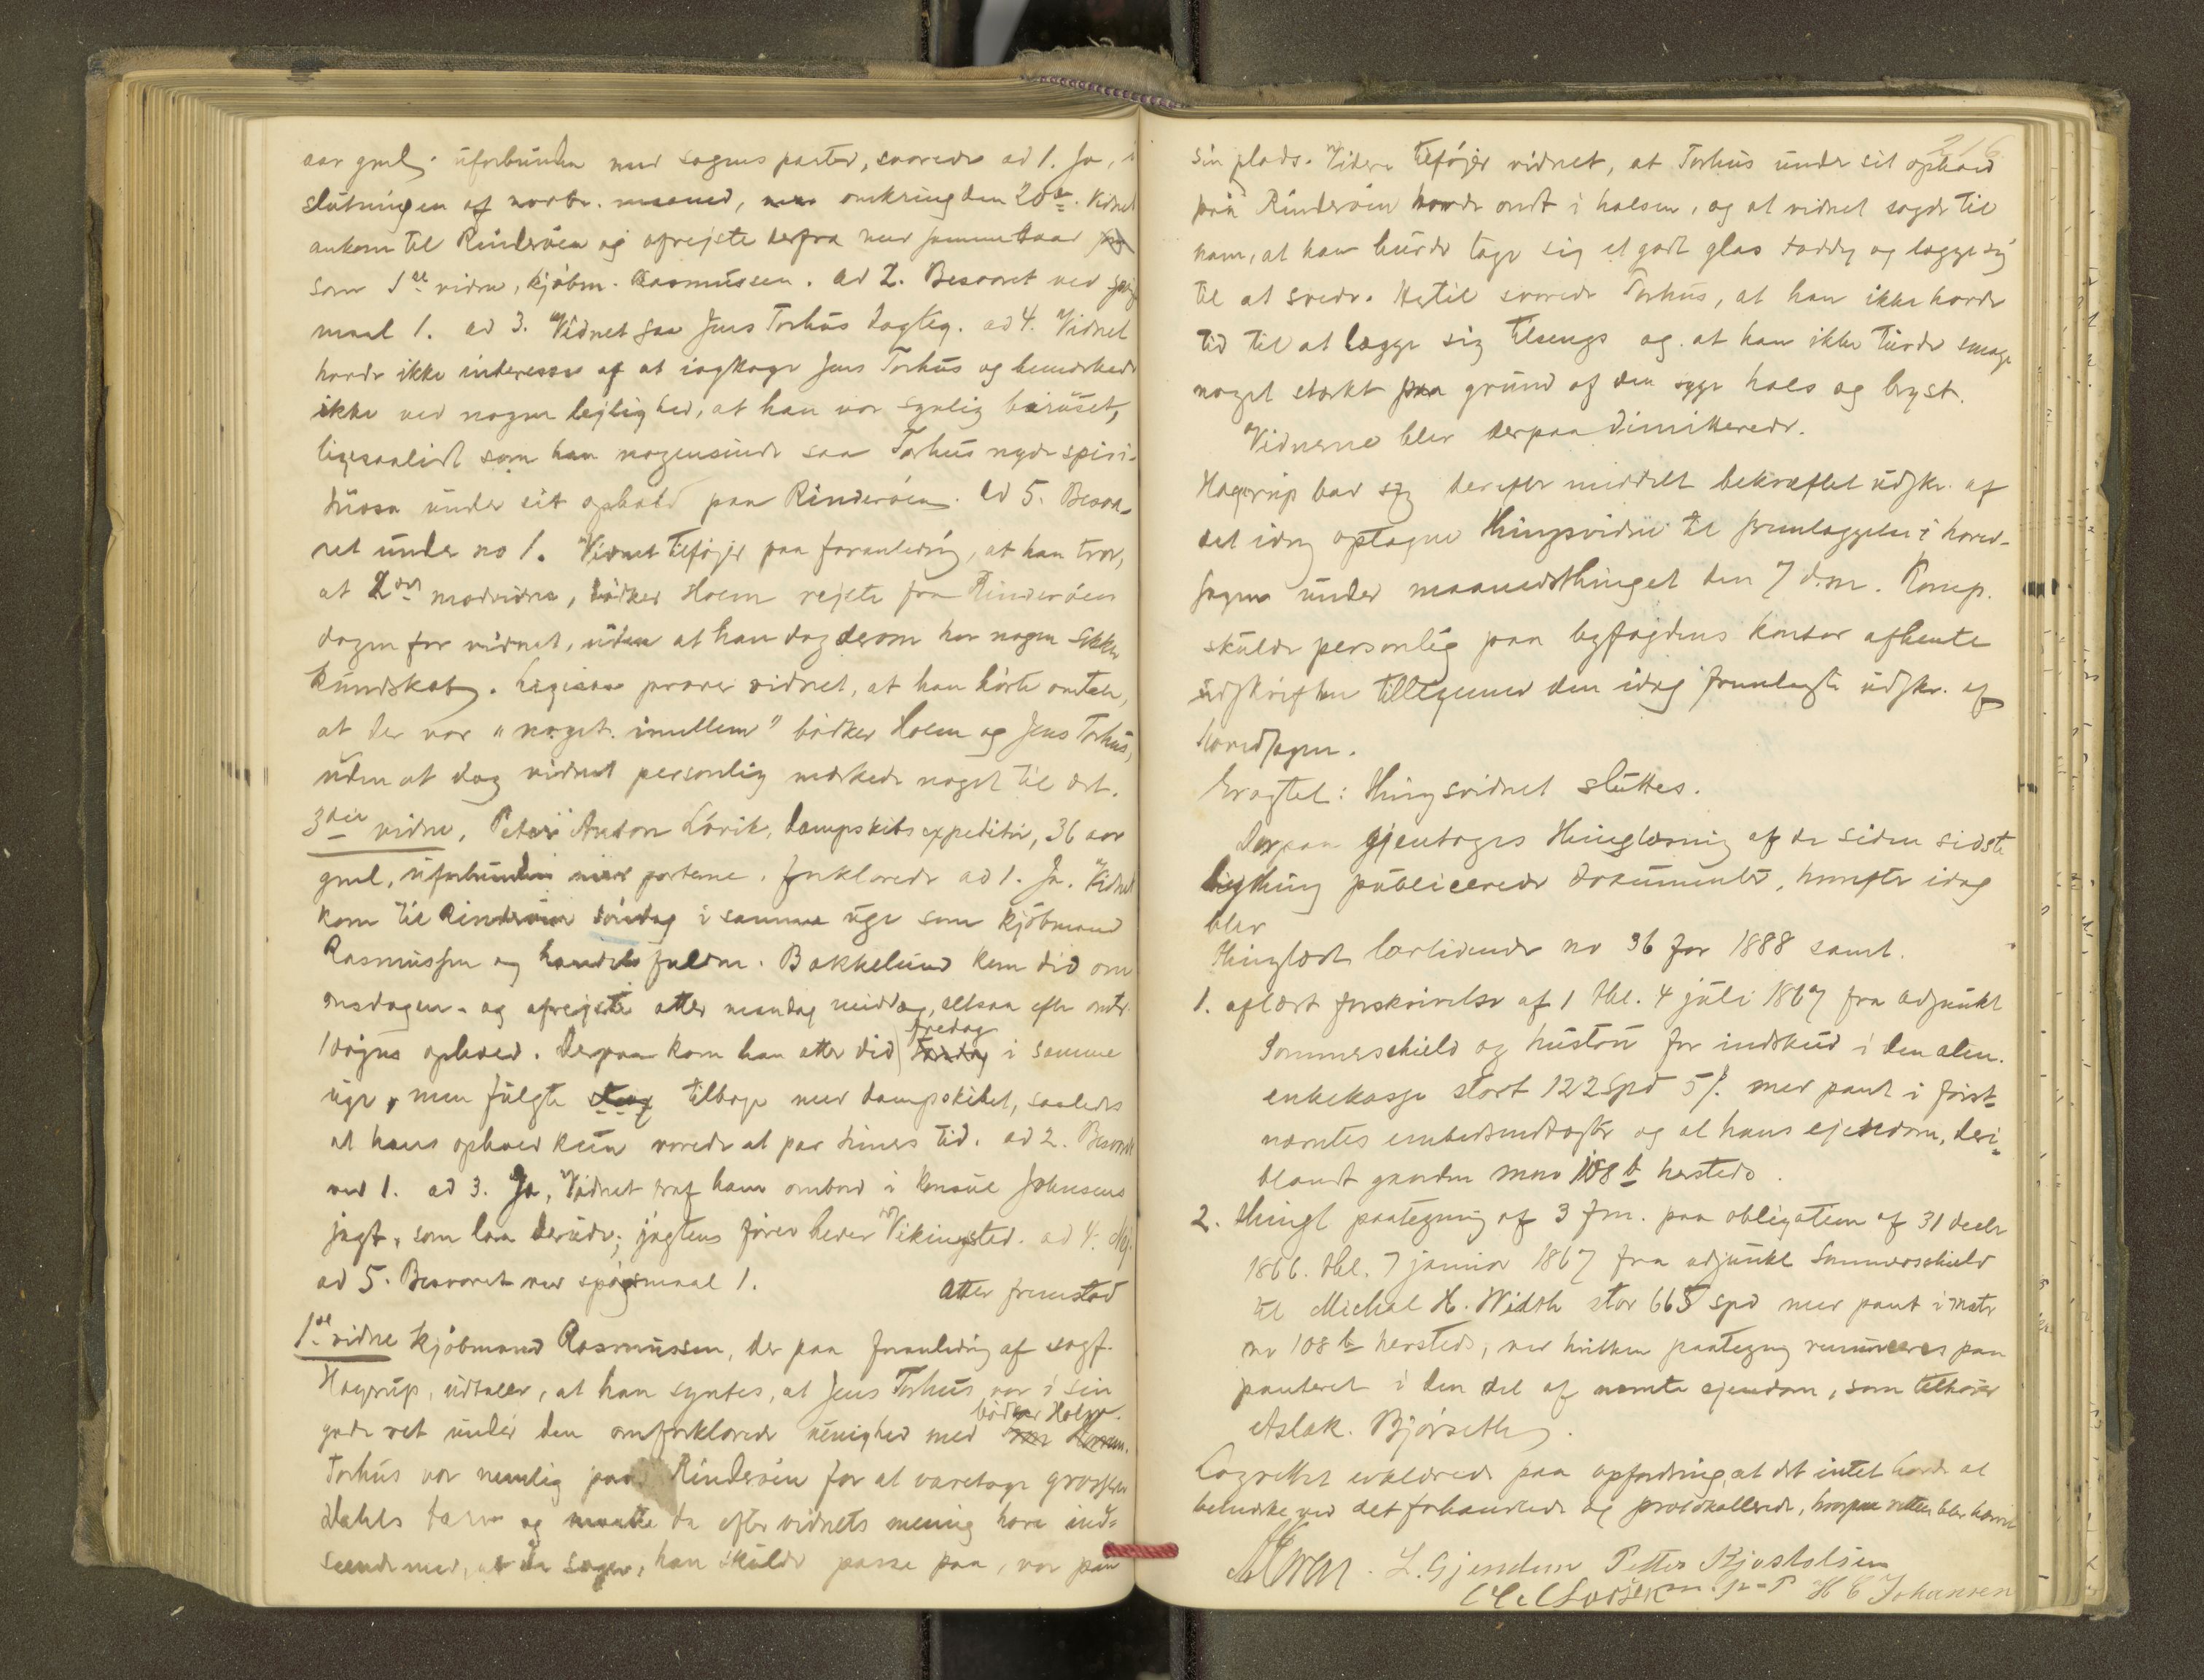 aar gml. uforbunden med sagens parter, svarede ad 1. Ja, i
slutningen af novbr. maaned, omkring den 20de. Vidnet
ankom til Rinderöen og afrejste derfra med samme baad
som 1ste vidne, kjöbm. Rasmussen. ad 2. Besvaret ved spörgs
maal 1. ad 3. Vidnet saa Jens Torhus daglig. ad 4. Vidnet
havde ikke interesse af at iagttage Jens Torhus og bemærkede
ikke ved nogen lejlighed, at han var synlig beruset,
ligesaalidt som han nogensinde saa Torhus nyde spiri-
tuosa under sit ophold paa Rinderöen. ad 5. Besva-
ret under no 1. Vidnet tilföjer paa foranledng, at han tror,
at 2det modvidne, bödker Holm rejste fra Rinderöen
dagen for vidnet, uden at han dog derom har nogen sikker
kundskab. Ligesaa prover vidnet, at han hörte omtale,
at der var "noget imellem" bödker Holm og Jens Torhus,
uden at dog vidnet personlig mærkede noget til det.
3die vidne, Peter Anton Lövik, dampskibsexpeditör, 36 aar
gml, uforbunden med parterne. forklarede ad 1. Ja. Vidnet
kom til Rinderöen söndag i samme uge som kjöbmand
Rasmussen og handelsfuldm. Bakkelund kom did om
onsdagen og afrejste atter mandag middag, altsaa efter omtr.
1 dögns ophold. Derpaa kom han atter did fredag i samme
uge, men fulgte strax tilbage med dampskibet, saaledes
at hans ophold kun varede et par timers tid. ad 2. Besvaret
ved 1. ad 3. Ja, Vidnet traf ham ombord i konsul Johnsens
jagt, som laa derude; jagtens förer heder Vikingsted. ad 4. Nej.
ad 5. Besvaret ved spörgsmaal 1. atter fremstod
1ste vidne kjöbmand Rasmussen, der paa foranledng af sagf.
Hagerup, udtaler, at han syntes, at Jens Torhus var i sin
gode ret under den omforklarede uenighed med bödker Holm.
Torhus var nemlig paa Rinderöen for at varetage grosserer
Dahls tarv og maatte da efter vidnets mening have ind-
seende med, at de sager, han skulde passe paa, var paa
216
sin plads. Videre tilföjer vidnet, at Torhus under sit ophold
paa Rinderöen havde ondt i halsen, og at vidnet sagde til
ham, at han burde tage sig et godt glas toddy og lægge sig
til at svede. Hertil svarede Torhus, at han ikke havde
tid til at lægge sig tilsengs og at han ikke turde smage
noget stærkt paa grund af den syge hals og bryst.
Vidnerne blev derpaa dimitterede.
Hagerup bad sig derefter meddelt bekræftet udskr. af
det idag optagne thingsvidne til fremlæggelse i hoved-
sagen under maanedsthinget den 7 d.m. Komp.
skulde personlig paa byfogdens kontor afhente
udskriften tilligemed den idag fremlagte udskr. af
hovedsagen.
Eragtet: Thingsvidnet sluttes.
Derpaa gjentoges thinglæsning af de siden sidste
bything publicerede dokumenter, hvorefter idag
blev
thinglæst lovtidende no 36 for 1888 samt.
1. aflæst forskrivelse af 1 thl. 4 juli 1867 fra adjunkt
Sommerschield og hustru for indskud i den alm.
enkekasse stort 122 spd 5 ß. med pant i först-
nævntes embedsindtægter og al hans ejendom, deri-
blandt gaarden mno 108 b hersteds.
2. thingl paategning af 3 f.m. paa obligation af 31 decbr
1866. thl. 7 januar 1867 fra adjunkt Sommerschield
til Michal H. Width stor 665 spd med pant i matr
no 108 b hersteds, ved hvilken paategng renunceres paa
panteret i den del af nævnte ejendom, som tilhörer
Aslak Björseth.
Lagrettet erklærede paa opfordring, at det intet havde at
bemærke ved det forhandlede og protokollerede, hvorpaa retten blev hævet
L. Gjendem Petter Kjostolsen
H C Johansen